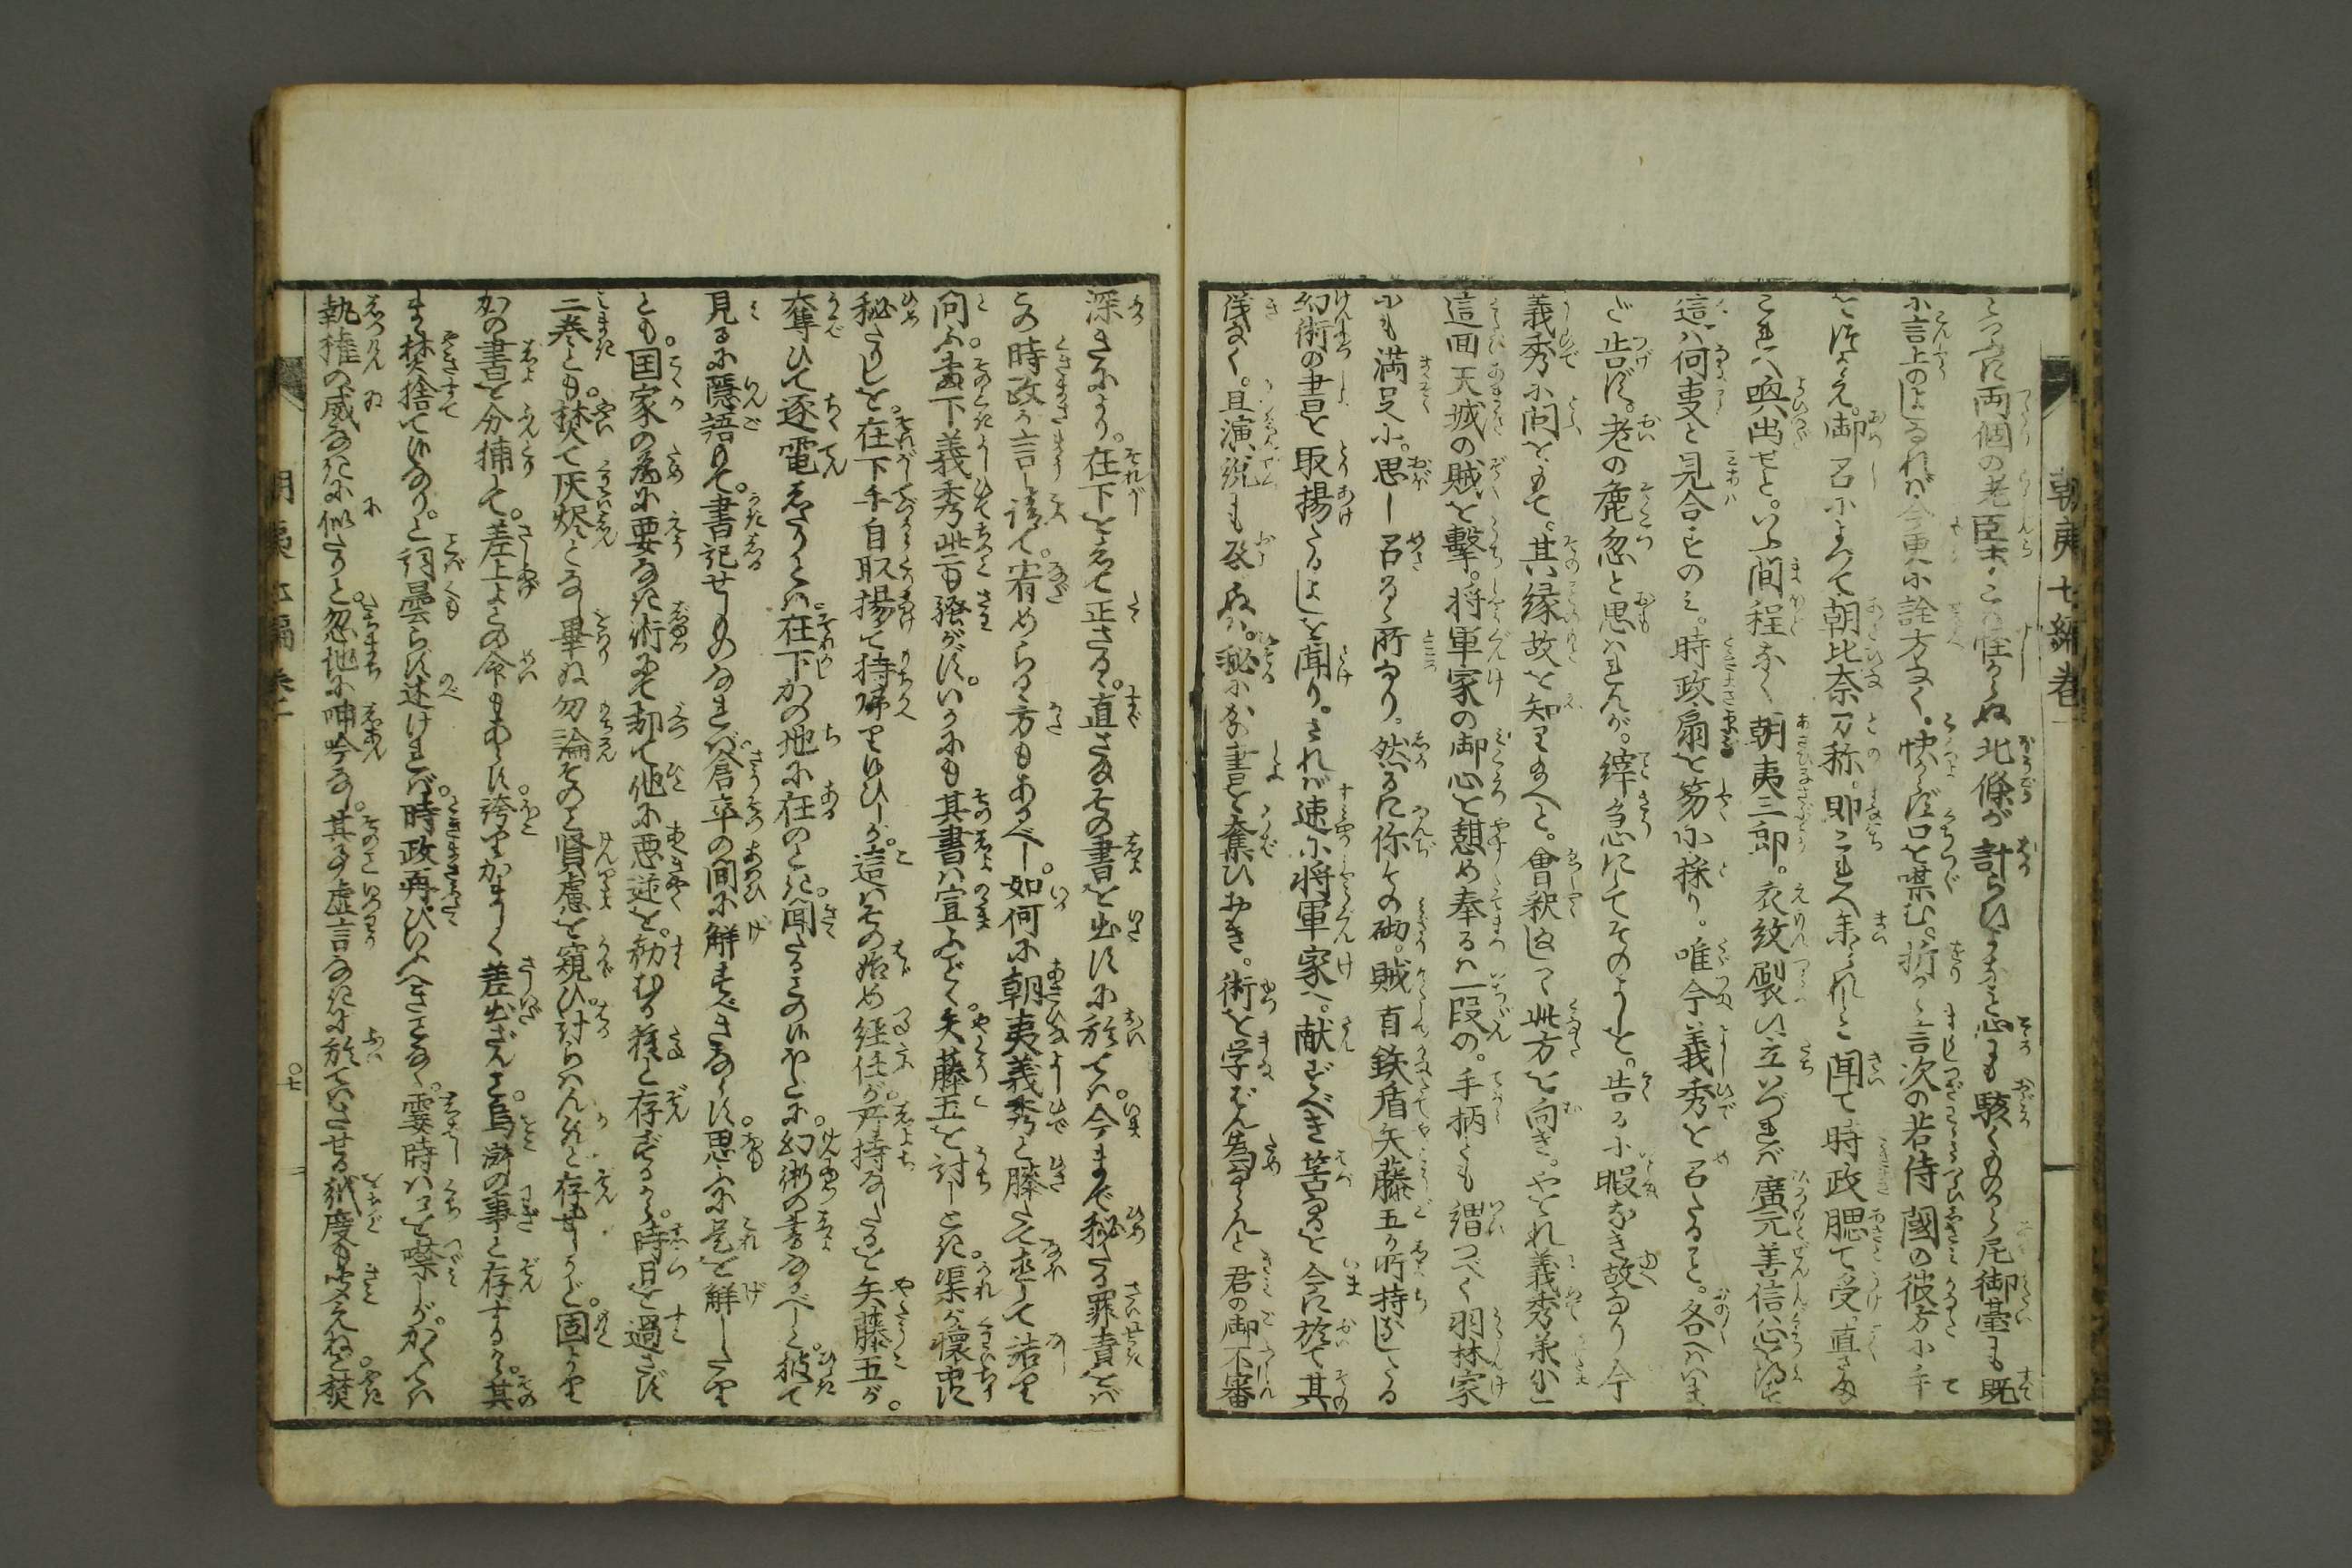 朝夷七編巻二
両個の老臣。こハ怪からぬ北條が計らひかなと心も駭くものから尼御臺にも既
に言上のよしなれバ今更に詮方なく。快からず口を噤む。折から言次の若侍閾の彼方に手
をつかえ。御召によつて朝比奈刀祢。即これへ参られしと聞て時政腮て受。直さま
これへ喚出せと。いふ間程なく朝夷三郎。衣紋刷ひ立いづれバ廣元善信心得ず
這ハ何事と見合すのミ。時政扇を笏に採り。唯今義秀を召たること。各へハいま
だ告げず。老の麁忽と思ハれんが。緯急にしてそのよしを。告るに暇なき故なり今
義秀に問をもて。其縁故を知りたまへと。會釈しつゝ此方を向き。やをれ義秀承ハれ
這回天城の賊を撃。将軍家の御心を憩め奉るハ一段の。手柄とも謂つべく羽林家
にも満足に。思し召るゝ所なり。然るに你その砌。賊首鉄盾矢藤五が所持なしたる
幻術の書を取揚たるよしを聞り。されバ速に将軍家へ。献ずべき筈なるを今に於て其
儀なく。且演説も及ばぬハ。秘にかの書を奪ひおき。術を学ばん為ならんと君の御不審
深きにより。在下をもて正さる。直さまその書を出すに於てハ。今まで秘たる罪責をバ
この時政が言し請て。宥めらるゝ方もあるべし。如何に朝夷義秀と膝をすゝめて詰り
問ふ。當下義秀些も騒がず。いかにも其書ハ宣ふごとく。矢藤五を討しとき。渠が懐中に
秘たりしを。在下手自取揚て持帰り候ひしが。這ハその始め経任が。所持なしたるを矢藤五が。
奪ひて逐電しけるとハ。在下かの地に在のとき。聞たることの候ほどに。幻術の書なるべしと。披て
見るに隠語もて。書記せしものなれバ。倉卒の間に解すべきならず。思ふに是を解したり
とも。国家の為に要なき術にて却て他に悪逆を。勧むる種と存ずるから。時日を過さず
二巻とも。焚て灰燼となし畢ぬ勿論そのとき賢慮を窺ひ。計らハんかと存ぜしかど。固より
かの書を分捕して。差上よとの命もあらず。誇りかましく差出さんこと。烏滸の事と存ずるから。其
まゝ焚捨て候なり。と詞曇らず述けれバ。時政再びいふべきことなく。霎時ハ口を噤しが。かくてハ
執権の威なきに似たりと。忽地に呻吟なし。其事虚言なきに於てハさせる紙度も聞えねど。焚
朝夷七編巻二
〇七